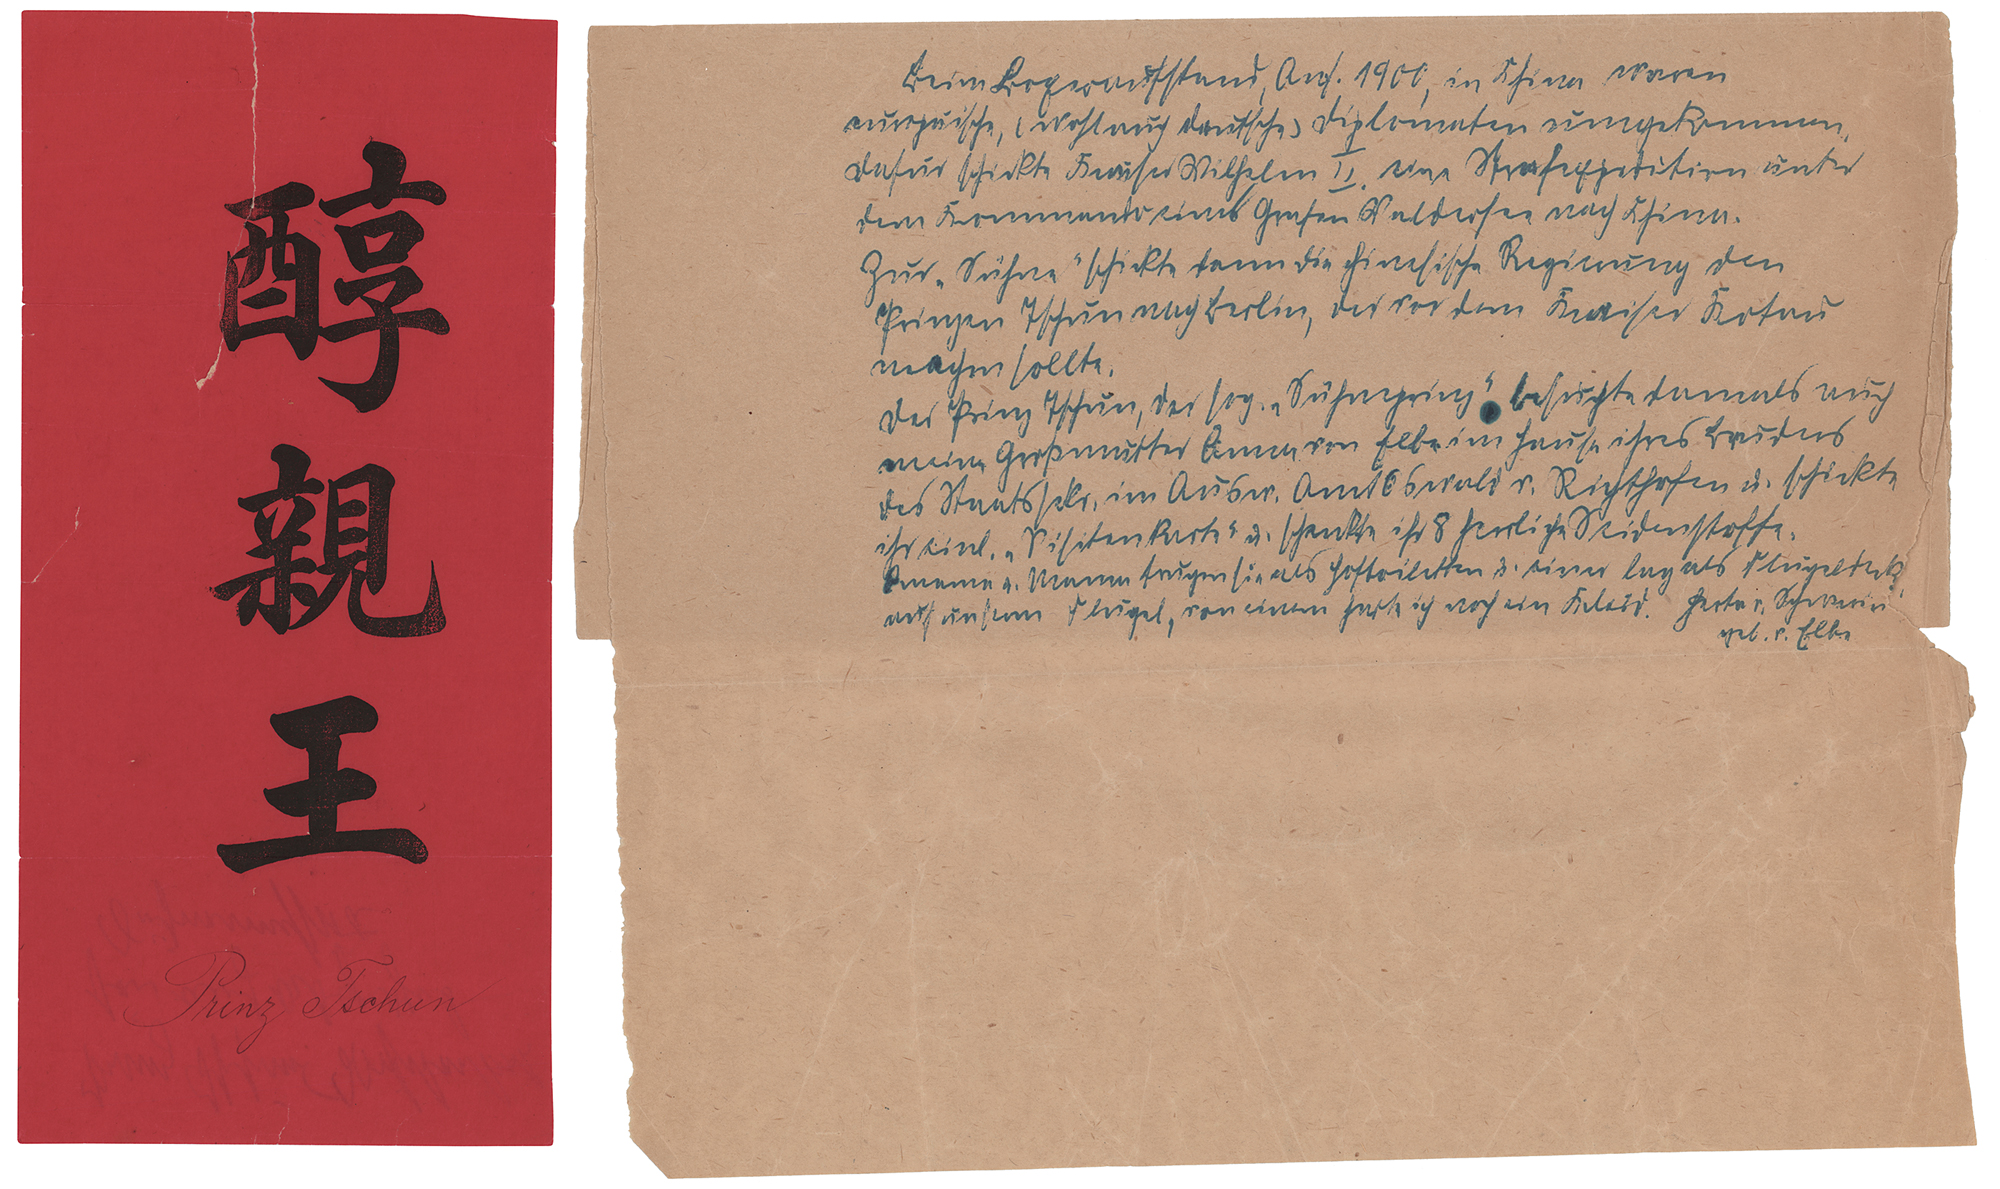 醇親王
Prinz Tschun
Beim Boxeraufstand, Anf. 1900, in China waren
europäische, (wohl auch deutsche) Diplomaten umgekommen,
dafür schickte Kaiser Wilhelm II. eine Strafexpedition unter
dem Kommando eines Grafen Waldersee nach China.
Zur „Sühne" schickte dann die chinesische Regierung den
Prinzen Tschun nach Berlin, der vor dem Kaiser Kotau
machen sollte.
Der Prinz Tschun, der sog. „Sühneprinz" besuchte damals auch
meine Großmutter Anna von Elbe im Hause ihres Bruders
des Staatssekr. im Ausw. Amt Oswald v. Richthofen u. schickte
ihr seine „Visitenkarte" u. schenkte ihr 8 herrliche Seidenstoffe.
u. Mama trugen sie als Hoftoiletten u. einer lag als Flügeldecke
auf unserm Flügel, von einem hatte ich noch ein Kleid. Herta v. Schwerin
geb. v. Elbe